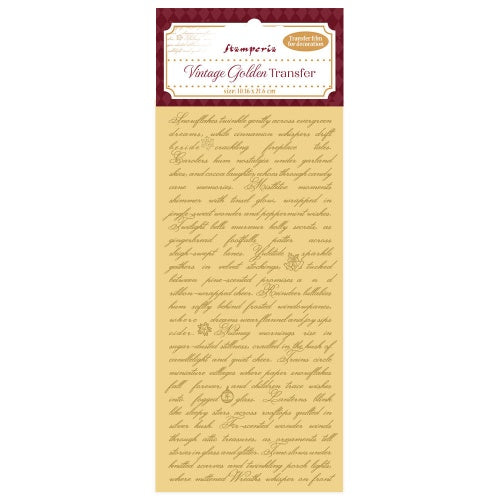 Transfer film
for decoration
Stamperia
Vintage Golden Transfer
size: 10.16 x 21.6 cm
Snowflakes twinkle gently across evergreen
dreams, while cinnamon whispers drift
beside crackling fireplace tales.
Carolers hum nostalgia under garland
skies, and cocoa laughter echoes through candy
cane memories. Mistletoe moments
shimmer with tinsel glow, wrapped in
jingle-sweet wonder and peppermint wishes.
Twilight bells murmur holly secrets, as
gingerbread footfalls patter across
sleigh-swept lanes. Yuletide sparkle
gathers in velvet stockings, tucked
between pine-scented promises and
ribbon-wrapped cheer. Reindeer lullabies
hum softly behind frosted windowpanes,
where dreams wear flannel and joy sips
cider. Nutmeg mornings rise in
sugar-dusted stillness, cradled in the hush of
candlelight and quiet cheer. Trains circle
miniature villages where paper snowflakes
fall forever, and children trace wishes
into fogged glass. Lanterns blink
like sleepy stars across rooftops quilted in
silver hush. Fir-scented wonder winds
through attic treasures, as ornaments tell
stories in glass and glitter. Time slows under
knitted scarves and twinkling porch lights,
where mittened Wreaths whisper on front